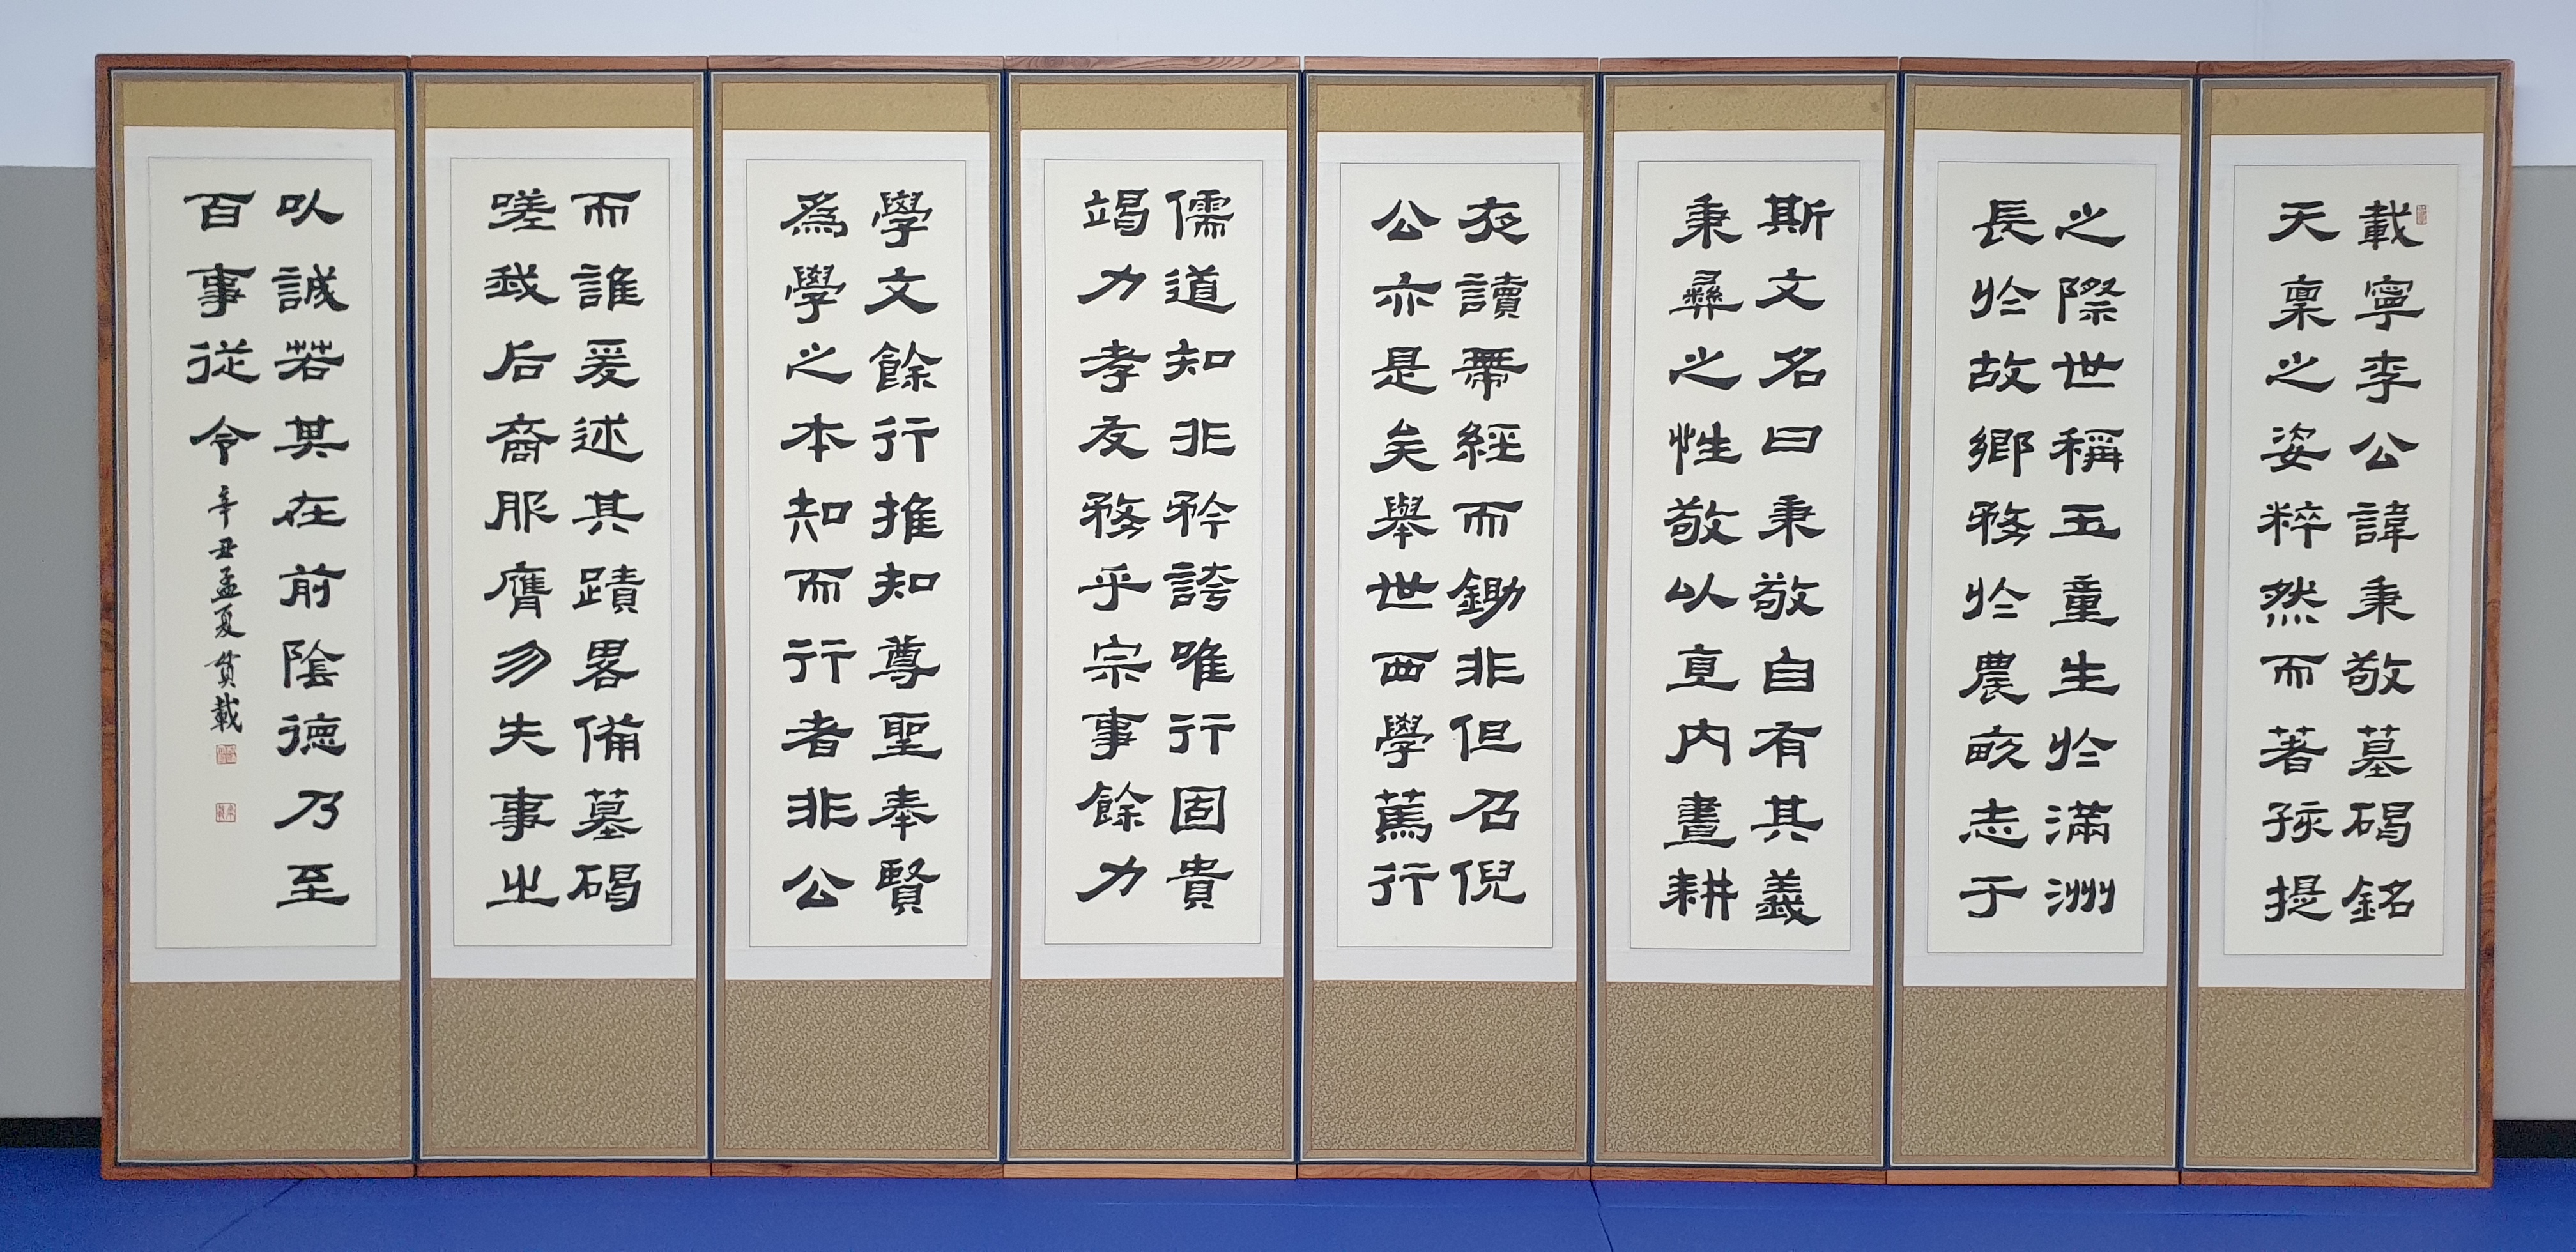 載寧李公諱秉敬墓碣銘
天稟之姿粹然而著孩提
之際世稱玉童生於滿洲
長於故鄉務於農畝志于
斯文名曰秉敬自有其義
秉彝之性敬以直內晝耕
夜讀帶經而鋤非但召倪
公亦是矣擧世西學篤行
儒道知非矜誇唯行固貴
竭力孝友務乎宗事餘力
學文餘行推知尊聖奉賢
爲學之本知而行者非公
而誰爰述其蹟畧備墓碣
嗟我后裔服膺勿失事之
以誠若其在前陰德乃至
百事從令
辛丑孟夏 載